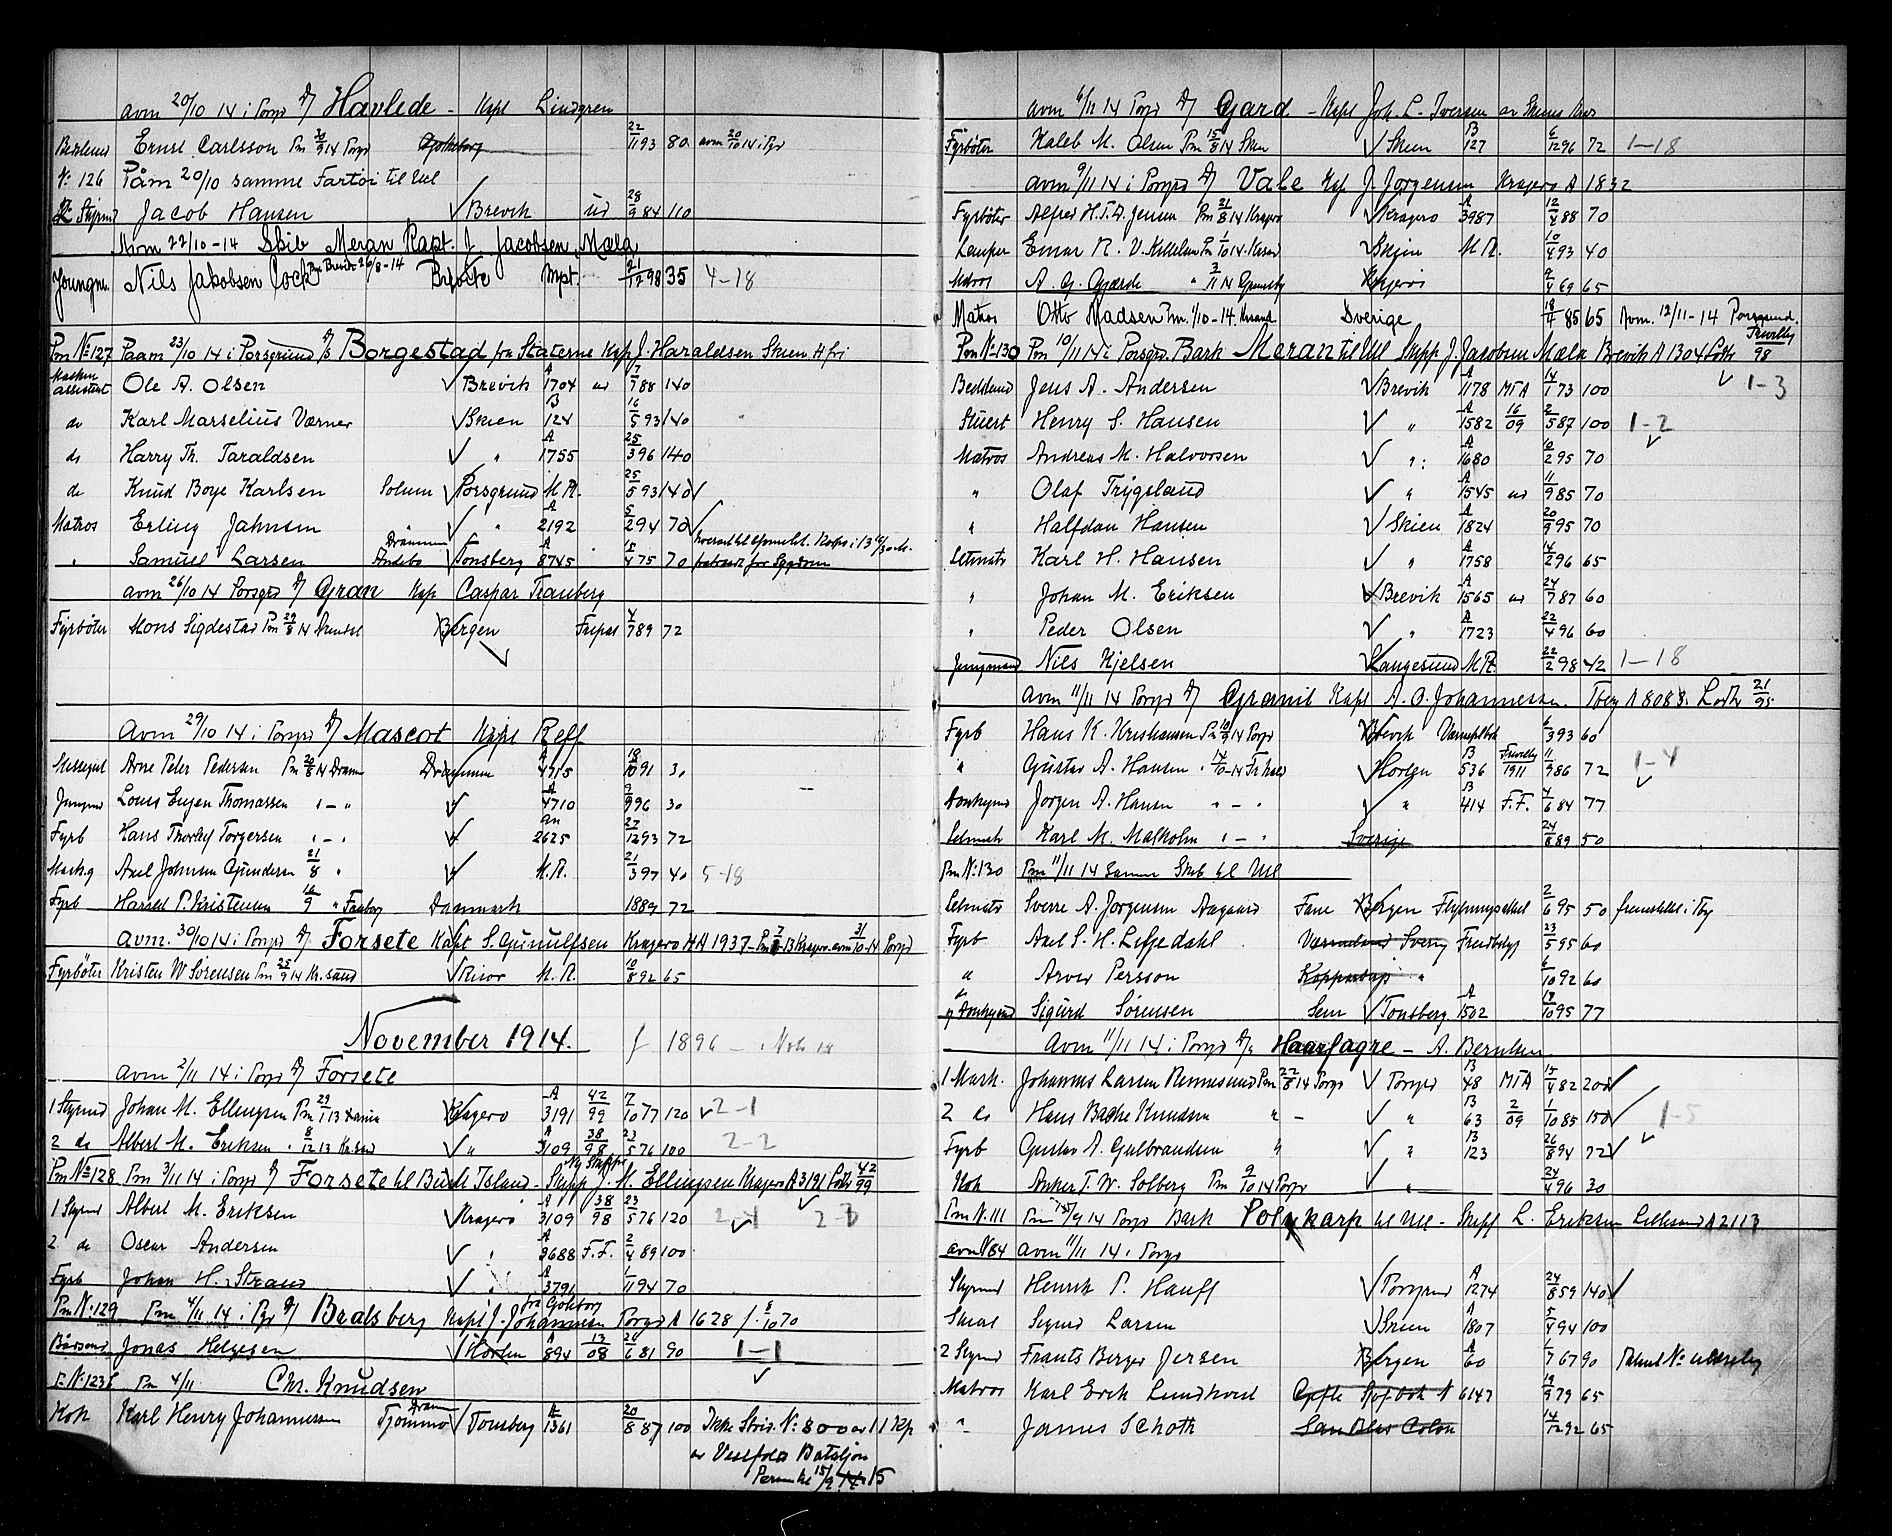 avm 20/10 14 i Porsgr D/S Havlide - Kapt Lindgren
Bedstmd Ernst Carlsson Pm 30/9 14 Porsgr Gøteborg 22/11 93 80 avm 20/10 14 i Pgr
No 126 Påm 20/10 samme Fartøi til Ud
2 Styrmd Jacob Hansen Brevik ud 28/9 84 110
Avm 22/10-14 Skib Meran Kapt. J. Jacobsen, Mæla
Youngm. Nils Jakobsen Cock Brevik 26/8-14 Brevik Mpt. 21/12 98 35 4-18
Pm No 127 Paam 23/10 14 i Porsgrund D/S Borgestad fra Staterne Kap J. Haraldsen Skien A fri
Maskin assistent Ole A. Olsen Brevik A 1704 ud 7/7 88 140
do Karl Marselius Værner Skien B 124 16/5 93 140
do Harry Th. Taraldsen " A 1755 25/3 96 140
do Knud Boye Karlsen Solum Porsgrund M.R. 25/5 93 140
Matros Erling Jahnsen " A 2192 5/2 94 70
" Samuel Larsen Drammen Andebo Tønsberg A 8745 15/4 75 70
avm 26/10 14 Porsgrd D/S Gran Kap Caspar Tranberg
Fyrbøter Mons Sigdestad Pm 29/8 14 Bergen Fripas 4/7 89 72
Avm 29/10 14 i Porsgr D/S Mascot Kapt Reff
Messegut Arne Peter Pedersen Pm 20/8 14 Dramm Drammen A 4715 10/10 91 30
Jungmd Louis Eugen Thomassen " - " A 4710 9/9 96 30
Fyrb Hans Thorleif Torgersen " - " an 2625 27/12 93 72
Mask.g Axel Johnsen Gundersen 21/8 " M.R. 21/3 97 40 5-18
Fyrb Harald P. Kristensen 16/9 " Faaborg Danmark 1889 72
avm. 30/10 14 i Porsgr D/S Forsete Kapt S. Gunulfsen Kragerø A 1937 - Kragerø avm 31/10-14 Porsgr
Fyrbøter Kristen W Sørensen Pm 25/9 14 Kr.sand Risør M.R. 10/8 92 65
November 1914. f 1896
avm 2/11 14 i Porsgr D/S Forsete
1 Styrmd Johan M. Ellingsen Pm 29/1 13 Kragerø A 3191 42/99 7/10 77 120 2-1
2 do Albert M. Eriksen " 8/12 13 Kr.sand " A 3109 38/98 23/5 76 100 2-2
Pm No 128 Pm 3/11 14 i Porsgr D/S Forsete til Ud Island - Ny Skipper Skipp J. M. Ellingsen Kragerø A 3191 Lods 42/99
1 Styrmd Albert M. Eriksen Kragerø A 3109 38/98 23/5 76 120
2 do Oscar Andersen " A 3688 F.F. 2/4 89 100
Fyrb Johan H. Strand " A 3791 1/11 94 70
Pm No 129 Pm 4/11 14 i Pgr D/S Bradsberg Kapt J. Johannesen fra Gøteborg Porsgr A 1628 f. 5/10 70
Baadsmd Jonas Helgesen Horten A 894 13/08 26/6 81 90 1-1
Pm 4/11 Chr. Knudsen
Kok Karl Henry Johannessen Dramm Tjømmø Tønsberg A 1361 20/8 87 100 Ikke Strid. No 800 av 11 Kp
av Vestfold Bataljon
Perm til 15/9 15
avm 6/11 14 Porsgr D/S Gard - Kapt Joh. L. Iversen av Skiens
Fyrbøter Kaleb M. Olsen Pm 15/8 14 Skien Skien B 127 6/12 96 72 1-18
avm 9/11 14 i Porsgrd D/S Vale Kap J. Jørgensen Kragerø A 1832
Fyrbøter Alfred H.T.A. Jensen Pm 21/8 14 Kragerø Kragerø A 3987 12/4 88 70
Lemper Einar R. V. Pm 1/10 14 Skien M.R. 10/4 93 40
Matros A. G. Gjærde " 3/11 14 Grimsby Kragerø 9/4 69 65
Matros Otto Madsen Pm. 1/10-14. Sverige 18/4 85 65 Avm. 12/11-14 Porsgrund.
Pm No 130 Pm 10/11 14 i Porsgrd. Bark Meran til Ud Skipp J. Jacobsen Mæla Brevik A 1304 Lods Frivillig 98
Bedstmd Jens A. Andersen Brevik A 1178 MTA 14/1 73 100 1-3
Stuert Henry S. Hansen " A 1582 16/09 2/5 87 100 1-2
Matros Andreas M. Halvorsen " A 1680 10/2 95 70
" Olaf Trygsland " A 1545 ud 11/9 85 70
" Halfdan Hansen Skien A 1824 20/9 95 70
Letmats Karl H. Hansen " A 1758 14/2 96 65
" Johan M. Eriksen Brevik A 1565 ud 24/7 87 60
" Peder Olsen " A 1723 22/4 96 60
Jungmand Nils Kjelsen Langesund M.R. 22/2 98 42 1-18
avm 11/11 14 Porsgr D/S Gramit Kapt A. O. Johannessen. Tbrg A 8083. Lods 21/95
Fyrb Hans K. Kristiansen Pm 10/9 14 Porsgr Brevik Værneplbok 6/3 93 60
" Gustav A. Hansen " 14/10-14 Fr.hald Horten B 536 Frivillig 1911 11/9 86 72 1-4
Donkymd Jørgen A. Hansen " - " " B 414 F.F. 4/6 84 77
Letmats Karl M. Malkolm " - " Sverige 24/8 89 50
Pm No 130 Pm 11/11 14 samme Skib til Ud
Letmats Sverre A. Jørgensen Aagaard Fane Bergen 2/6 95 50 fremstillet i Tbg
Fyrb Axel S. H. Liljedahl Værmland Sverig 23/5 95 60
" Arvid Persson Kopparberg " 6/10 92 60
" Donkymd Sigurd Sørensen Sem Tønsberg A 1502 18/10 95 77
Avm 11/11 14 i Porsgr D/S Haarfagre - A. Berntsen
1 Mask. Johannes Larsen Rennesund Pm 22/8 14 Porsgr Porsgr B 48 MTA 15/4 82 200
2 do Hans Bache Knudsen " - " B 63 2/09 1/10 85 150 1-5
Fyrb Gustav A. Gulbrandsen " " B 123 26/8 94 72
Kok Anker T. W. Solberg Pm 9/10 14 Porsgr " 24/4 96 30
Pm No 111 Pm 15/9 14 Porsgr Bark Polykarp til Ud - Skipp L. Eriksen Lillesand A 2113
avm No 84 avm 11/11 14 i Porsgr
Styrmd Henrik P. Hauff Porsgrund A 1274 24/8 59 140
Sigurd Larsen Skien A 1807 5/4 94 100
2 Styrmd Frants Berger Jersen Bergen A 60 1/7 67 90 Patent No
Matros Karl Erik Lundkvist Gefle Sjøf.bok N 6147 19/9 79 65
" James Schoth San Blas Colon 14/12 92 65